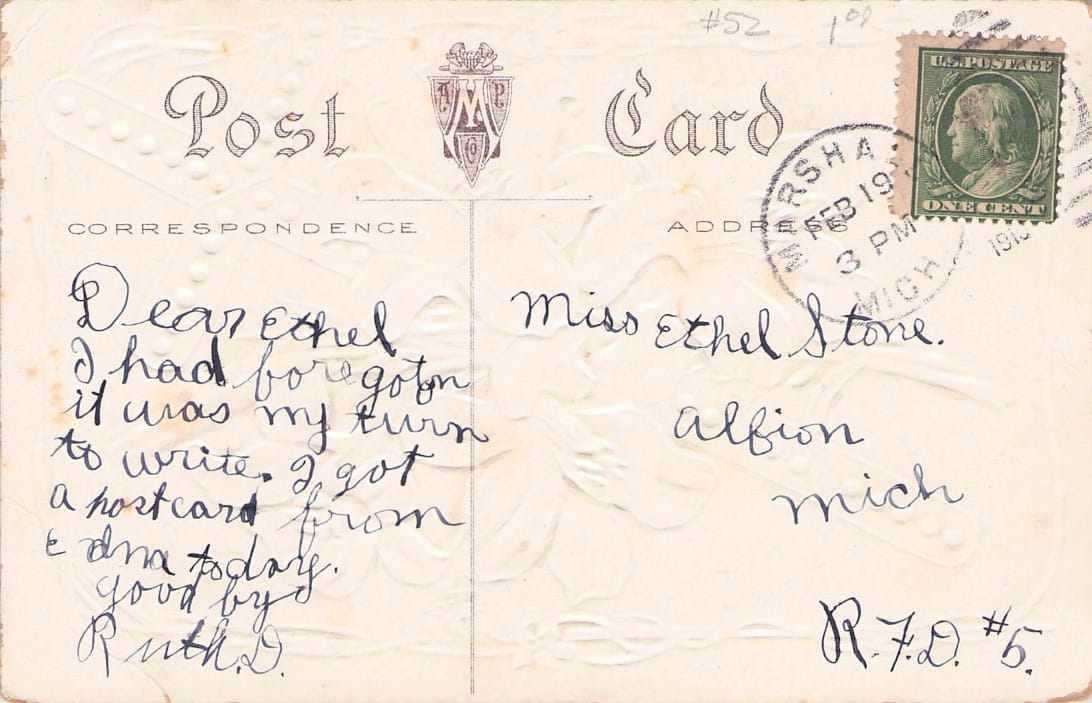 #52 1⁰⁰
Post Card
A M P CO
U.S. POSTAGE
ONE CENT
MARSHA
FEB 19
3 PM
MICH.
191
CORRESPONDENCE
ADDRESS
Dear Ethel
I had foregoton
it was my turn
to write. I got
a postcard from
Edna today.
good by
Ruth. D.
Miss Ethel Stone.
Albion
Mich
R.F.D. #5.